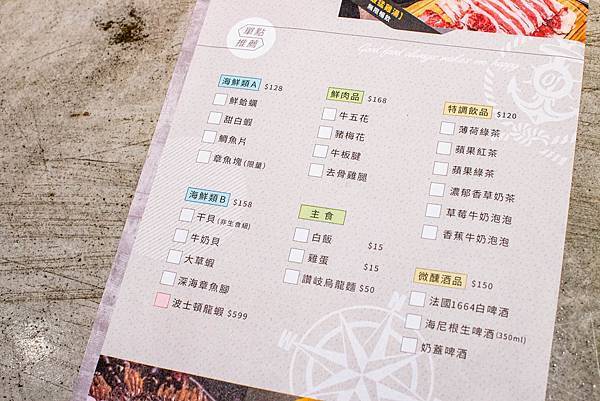 無限暢飲
單點
推薦
Good food always makes me happy
海鮮類A $128
鮮蛤蠣
甜白蝦
鯛魚片
章魚塊(限量)
海鮮類B $158
干貝(非生食級)
牛奶貝
大草蝦
深海章魚腳
波士頓龍蝦 $599
鮮肉品 $168
牛五花
豬梅花
牛板腱
去骨雞腿
主食
白飯 $15
雞蛋 $15
讚岐烏龍麵 $50
特調飲品 $120
薄荷綠茶
蘋果紅茶
蘋果綠茶
濃郁香草奶茶
草莓牛奶泡泡
香蕉牛奶泡泡
微醺酒品 $150
法國1664白啤酒
海尼根生啤酒(350ml)
奶蓋啤酒
N
W